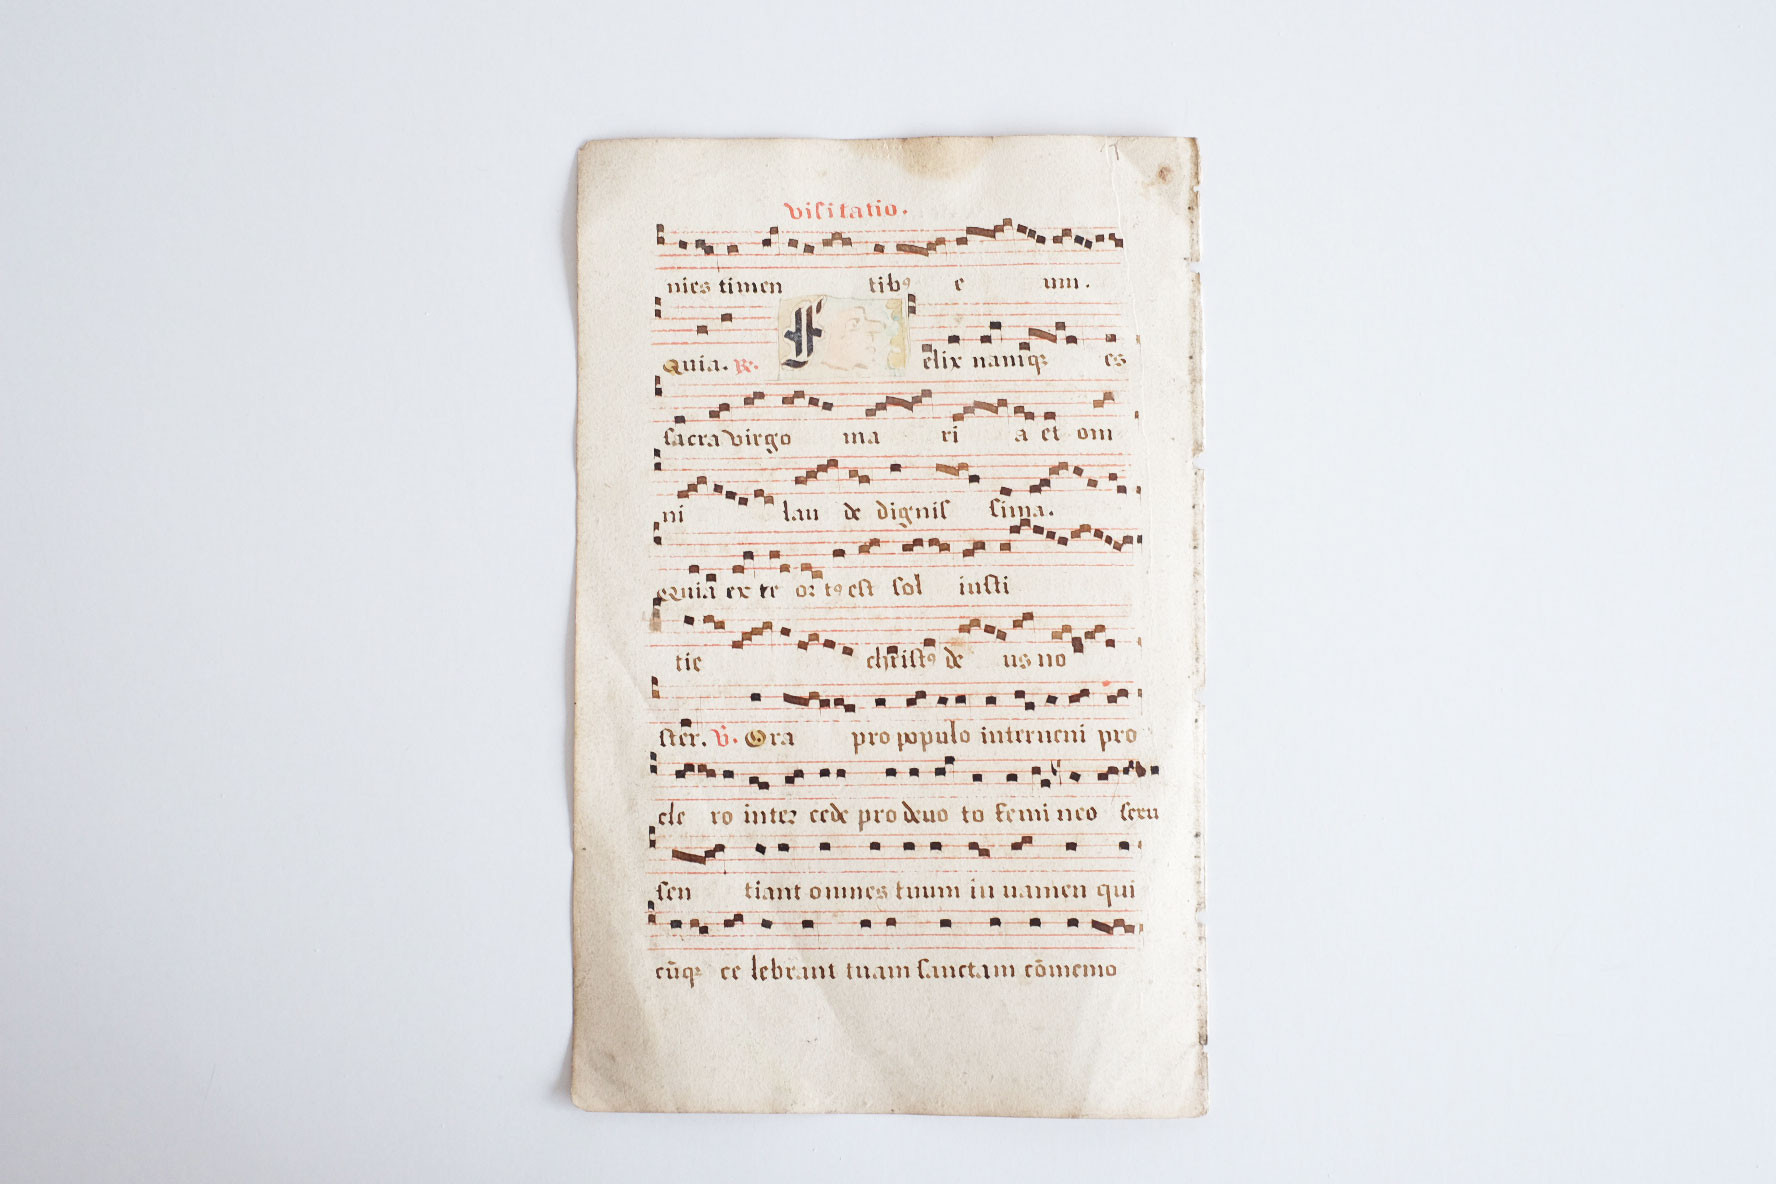 visitatio.
nies timen tibꝰ e um.
Quia. ℟. Felix namqꝫ es
sacra virgo ma ri a et om
ni lau de dignis sima.
Quia ex te oꝛ tꝰ est sol iusti
tie christꝰ de us no
ster. ℣. Ora pro populo interueni pro
cle ro inteꝛ cede pro deuo to femi neo sexu
sen tiant omnes tuum iu uamen qui
cūqꝫ ce lebrant tuam sanctam cōmemo